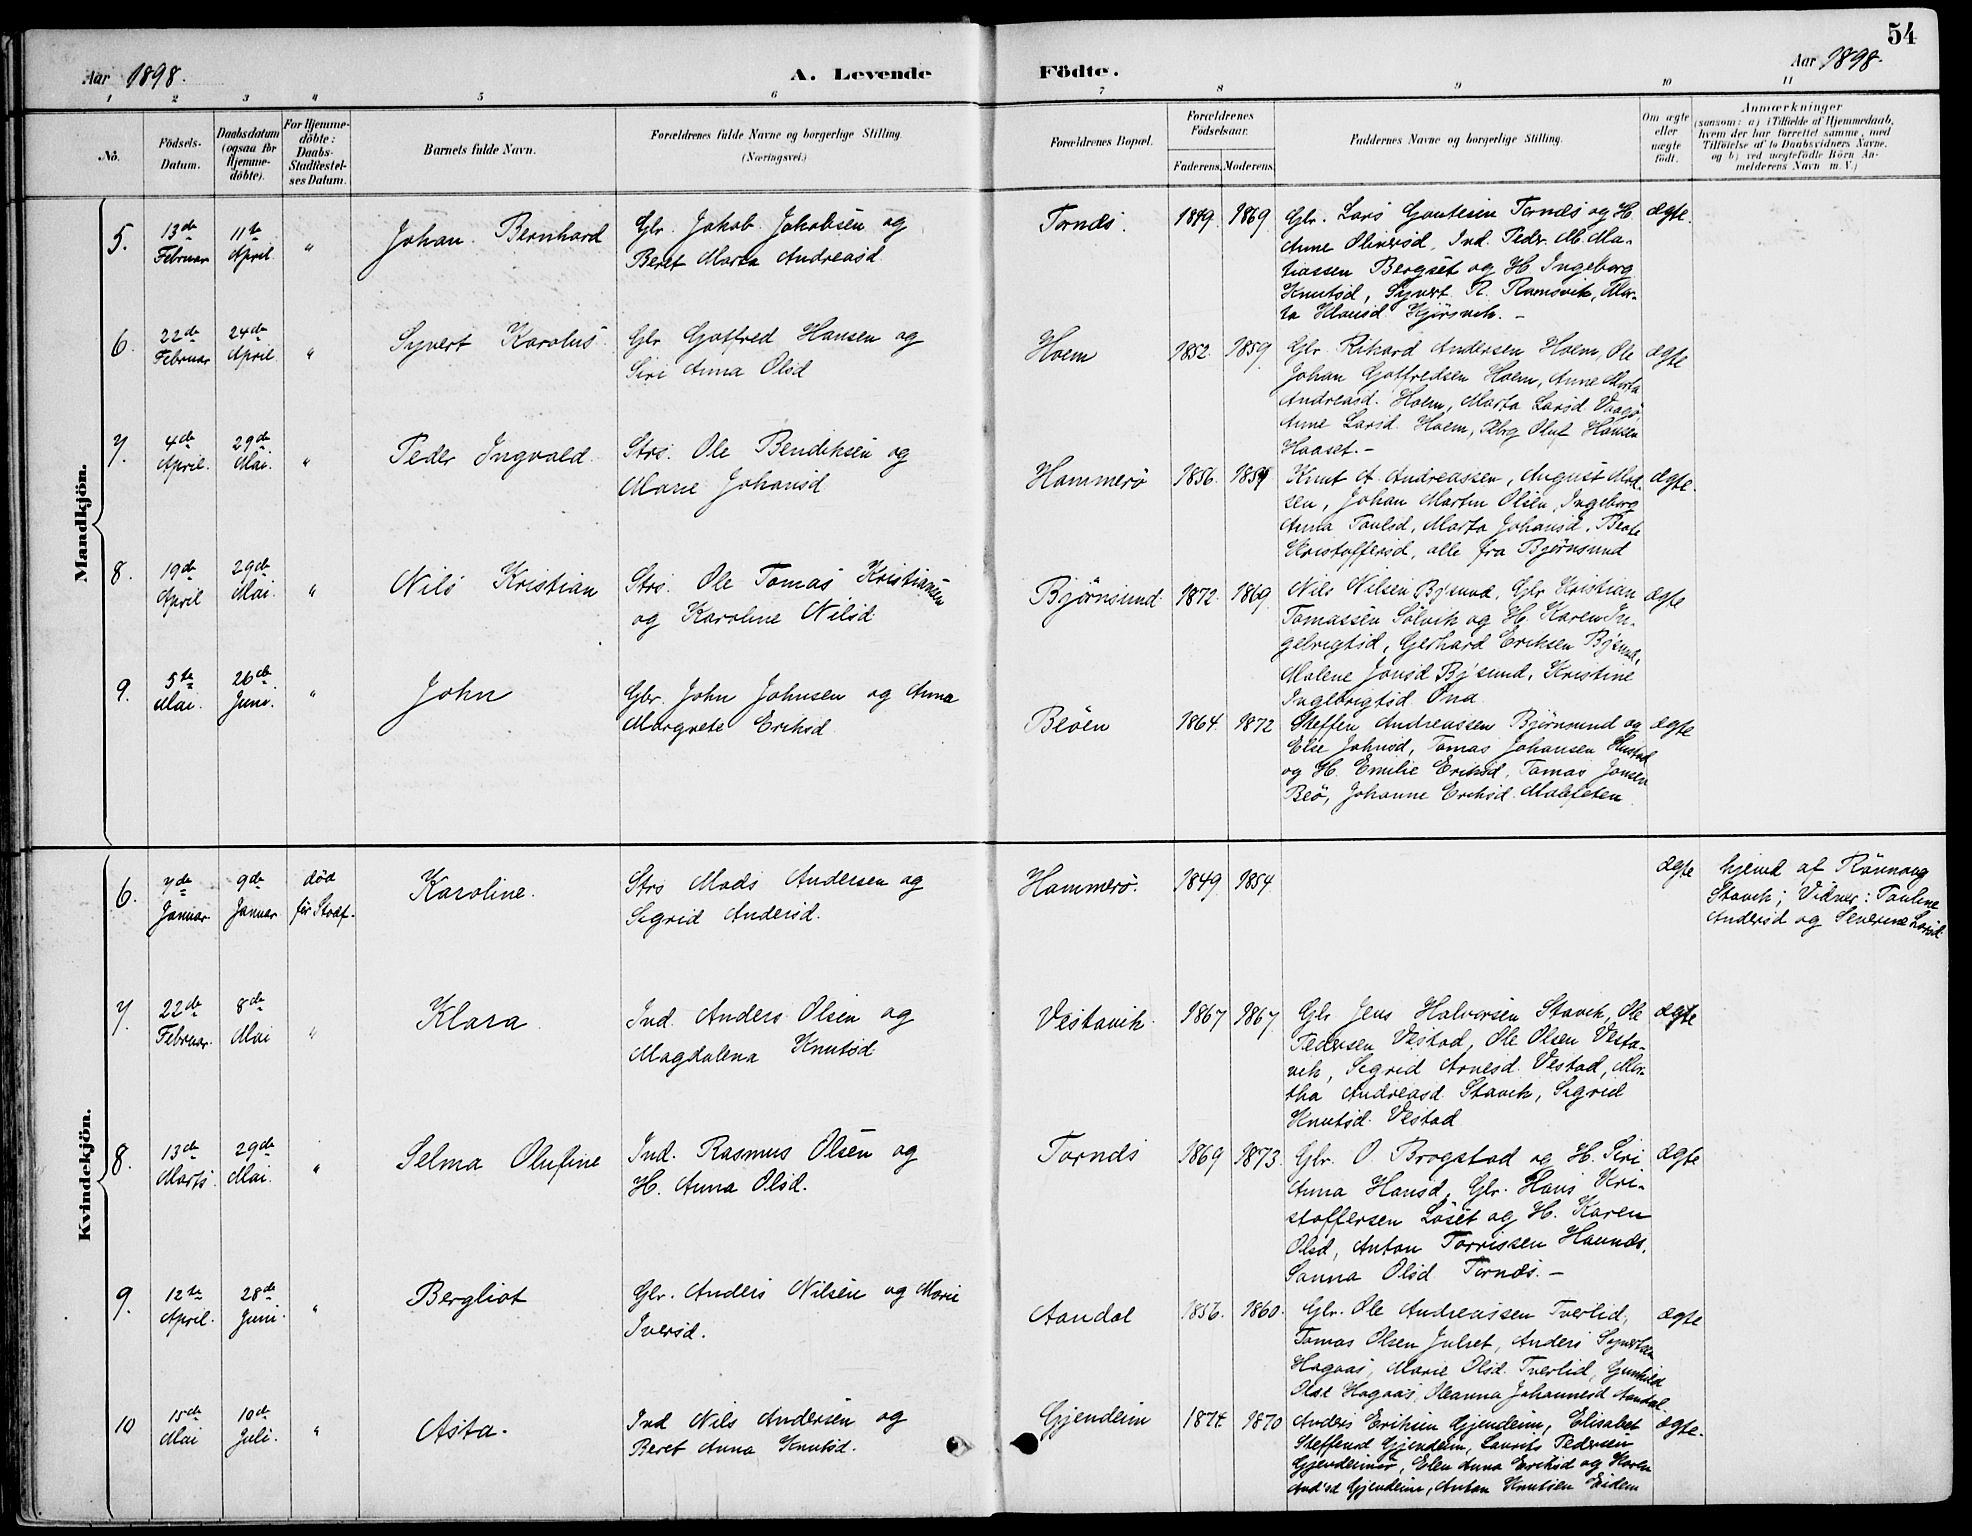 54
Aar 1898.
A. Levende
Födte.
Aar 1898.
1 2 3 4 5 6 7 8 9 10 11
No.
Födsels-
Datum.
Daabsdatum
(ogsaa for
Hjemme-
döbte).
For Hjemme-
döbte:
Daabs-
Stadfæstel-
ses Datum.
Barnets fulde Navn.
Forældrenes fulde Navne og borgerlige Stilling.
(Næringsvei.)
Forældrenes Bopæl.
Forældrenes
Födselsaar.
Faderens. Moderens.
Faddernes Navne og borgerlige Stilling.
Om ægte
eller
uægte
födt.
Anmærkninger
(saasom: a) i Tilfælde af Hjemmedaab,
hvem der har forrettet samme, med
Tilföielse af to Daabsvidners Navne,
og b) ved uægtefödte Börn An-
melderens Navn m. V.)
Mandkjön.
5.
13de
Februar
11te
April
"
Johan Bernhard
Gbr. Jakob Jakobsen og
Beret Marta Andreasd
Tornæs.
1849. 1869
Gbr. Lars Gautesen Tornæs og H.
Anne Olinesd, Ind. Peder M. Ma-
tiassen Bergset og H. Ingeborg
Knutsd, Syvert R. Ramsvik, Mar-
ta Hansd Hjørsvik. –
ægte.
6.
22de
Februar
24de
April
"
Syvert Karolus
Gbr Gotfred Hansen og
Siri Anna Olsd
Hoem
1852. 1859
Gbr Rikard Andersen Hoem, Ole
Johan Gotfredsen Hoem, Anne Marta
Andreasd. Hoem, Marta Larsd Vaagø
Anne Larsd. Hoem, Oluf Hansen
Haaset. –
ægte
7.
4de
April.
29de
Mai.
"
Peder Ingvald
Strs. Ole Bendiksen og
Marie Johansd
Hammerø
1856.
Knut A. Andreassen, August Mad-
sen, Johan Martin Olsen, Ingeborg
Anna Paulsd, Marta Johansd, Beate
Kristoffersd, alle fra Bjørnsund
ægte.
8.
19de
April
29de
Mai.
"
Nils Kristian
Strs. Ole Tomas Kristiansen
og Karoline Nilsd
Bjørnsund
1872. 1869
Nils Nilsen Bj'sund, Gbr Kristian
Tomassen Sølvik og H. Karen In-
gebrigtsd, Gerhard Eriksen Bj'sund,
Malene Jonsd Bj'sund, Kristine
Ingebrigtsd Ona
ægte
9.
5te
Mai.
26de
Juni.
"
John
Gbr. John Johnsen og Anna
Margrete Eriksd
Beöen
1864. 1872
Steffen Andreassen Bjørnsund og
Else Johnsd, Tomas Johansen Hustad
og H. Emilie Eriksd, Tomas Jonsen
Beö, Johanne Eriksd. Malefeten
ægte
Kvindekjön.
6.
7de
Januar
9de
Januar
død
før Stadf.
Karoline.
Strs Mads Andersen og
Sigrid Andersd.
Hammerø.
1849. 1854
ægte
hjemd af Rönnaug
Stavik; Vidner: Pauline
Andersd og Severine Larsd.
7.
22de
Februar.
8de
Mai
"
Klara
Ind. Anders Olsen og
Magdalena Knutsd
Vestavik
1867 1867
Gbr Jens Halvorsen Stavik, Ole
Pedersen Vestad, Ole Olsen Vesta-
vik, Sigrid Arnesd. Vestad, Mar-
tha Andreasd. Stavik, Sigrid
Knutsd. Vestad
ægte
8.
13de
Marts.
29de
Mai.
"
Selma Olufine
Ind. Rasmus Olsen og
H. Anna Olsd.
Tornæs
1869 1873.
Gbr. O. Brogstad og H. Siri
Anna Hansd, Gbr. Hans Kri-
stoffersen Løset og H. Karen
Olsd, Anton Torrissen Haunæs,
Sanna Olsd Tornæs. –
ægte
9.
12te
April.
28de
Juni.
"
Bergliot
Gbr. Anders Nilsen og Marie
Iversd.
Aandal
1856. 1860.
Gbr. Ole Andreassen Tverlid,
Tomas Olsen Julset, Anders Syvertsen
Hagaas, Marie Olsd. Tverlid, Gunhild
Olsd Hagaas, Oleanna Johannesd Aandal.
ægte
10
15de
Mai
10de
Juli.
"
Asta.
Ind Nils Andersen og
Beret Anna Knutsd.
Gjendeim
1874. 1870
Anders Eriksen Gjendeim, Elisabet
Steffensd Gjendeim, Laurits Pedersen
Gjendeimsør, Elen Anna Eriksd og Karen
And'sd Gjendeim, Anton Knutsen Eidem
ægte.